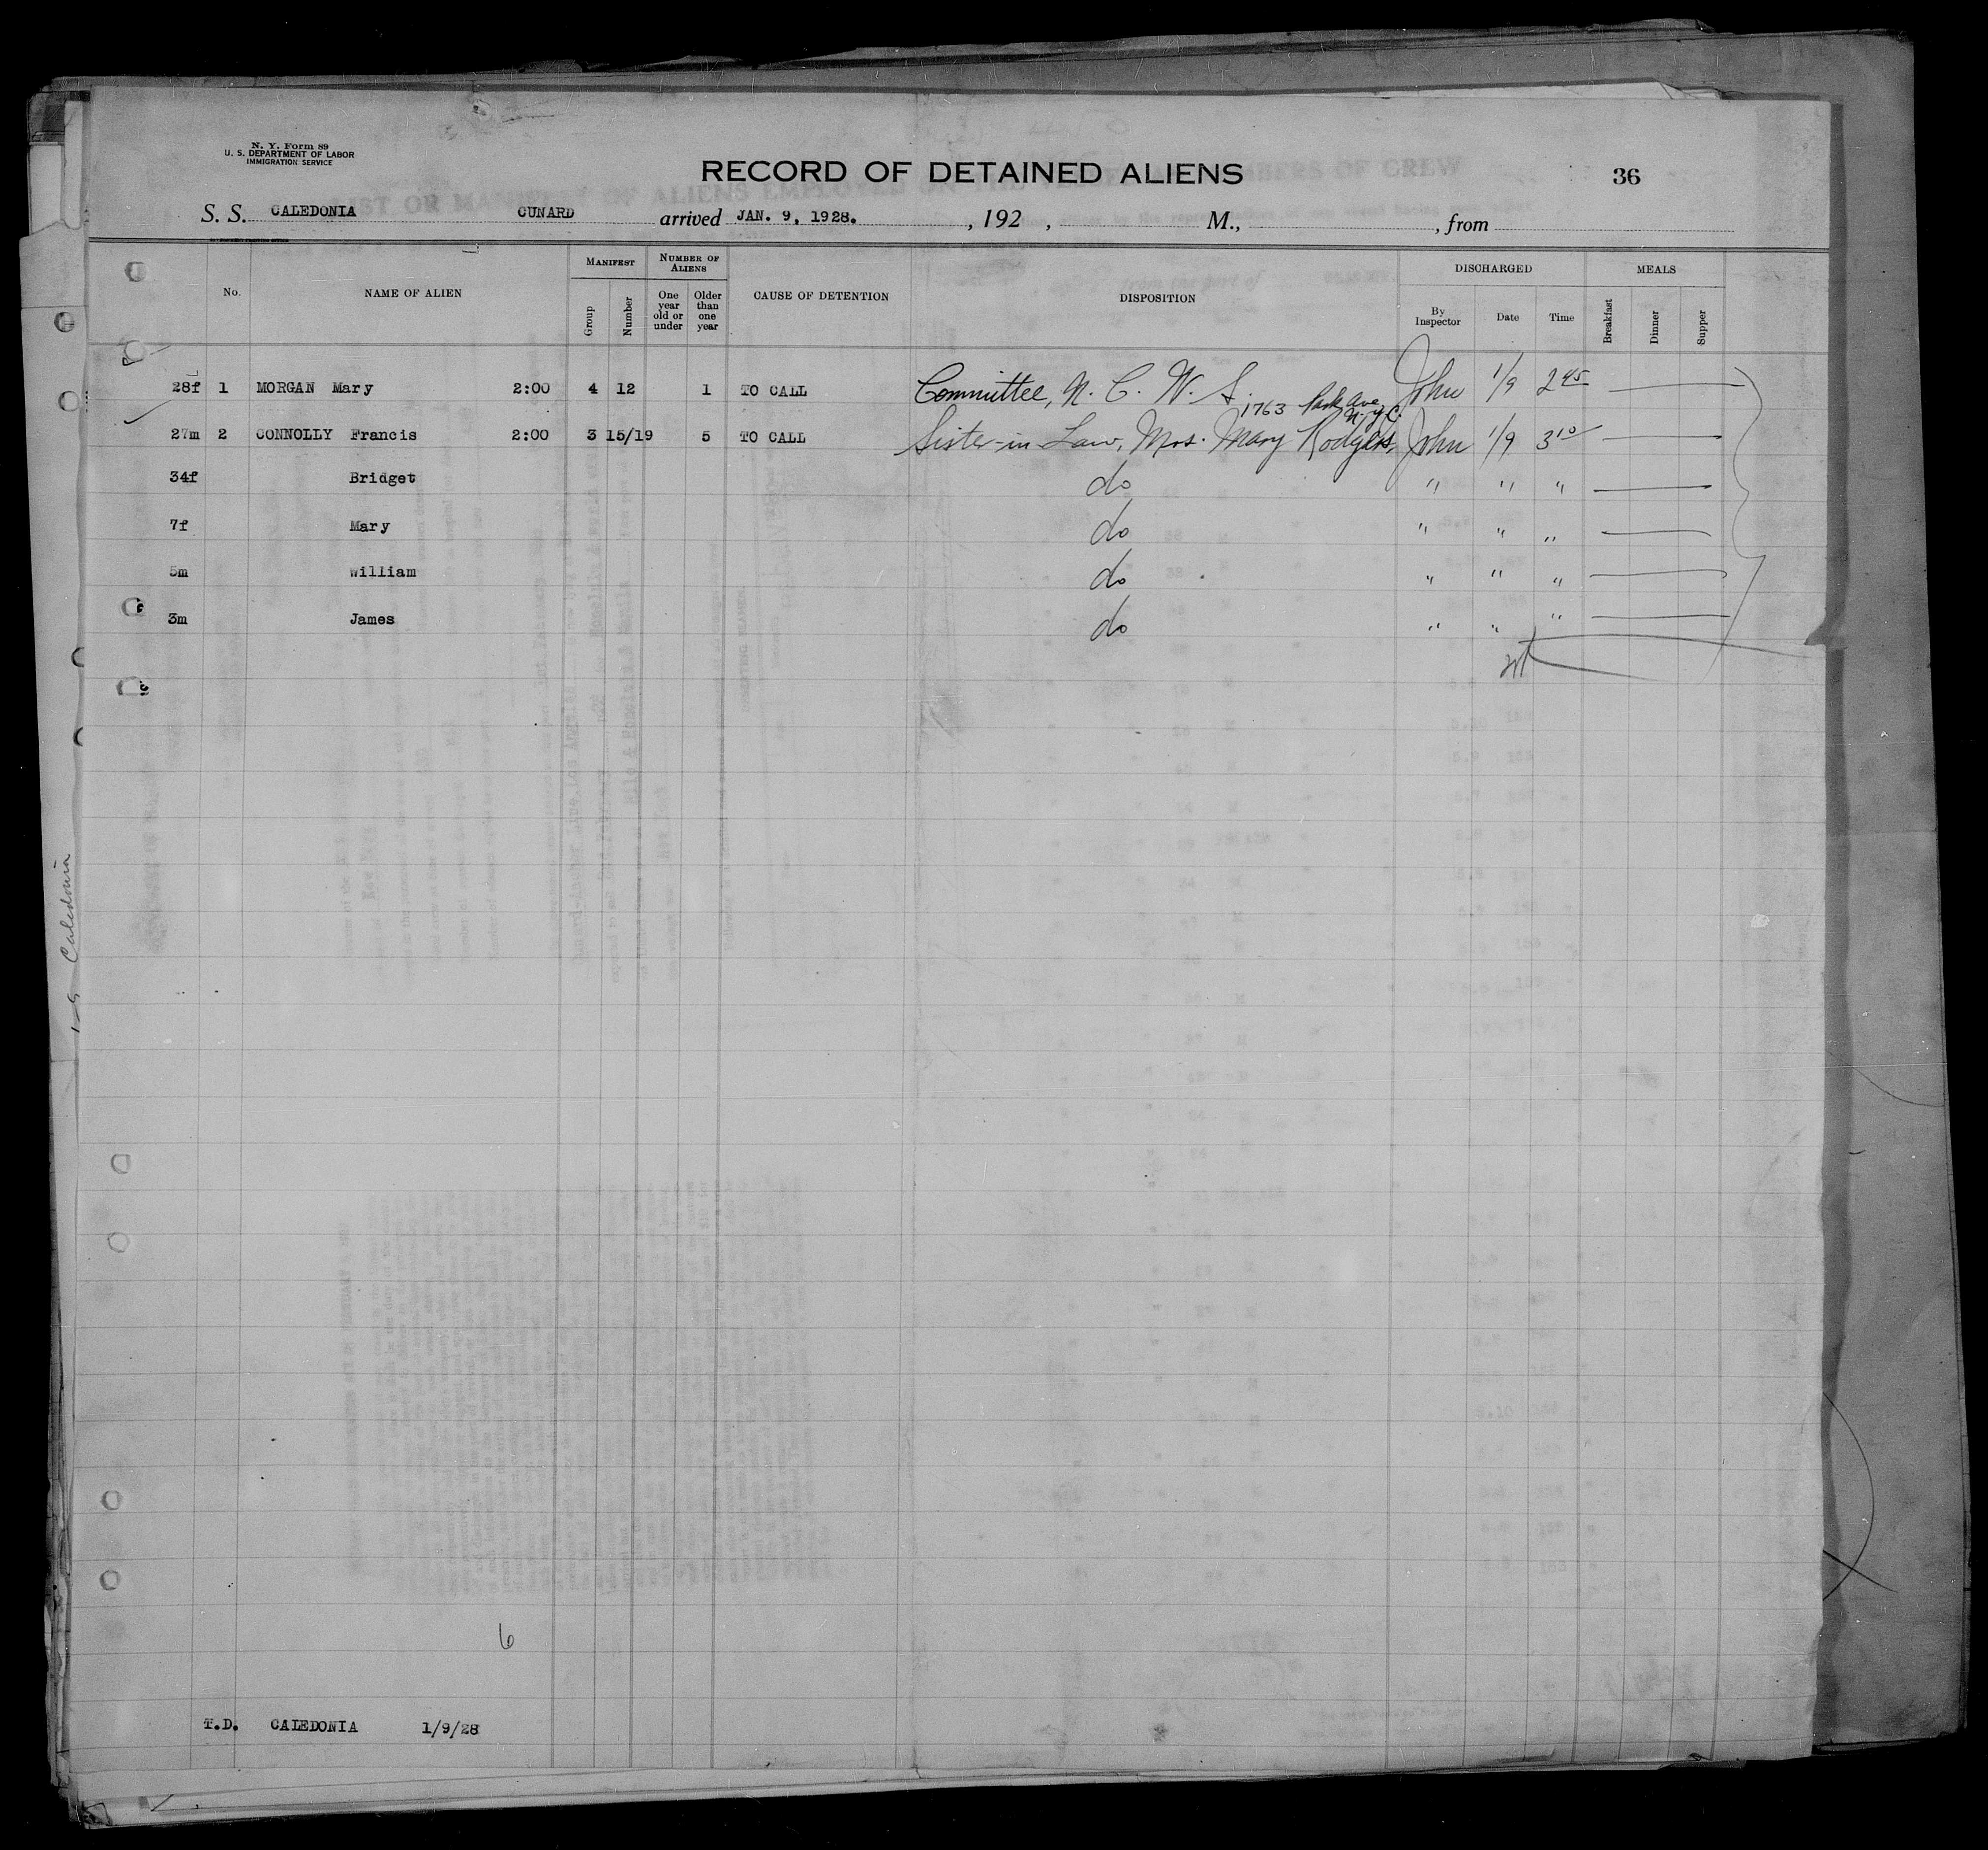 N. Y. Form 89
U. S. DEPARTMENT OF LABOR
IMMIGRATION SERVICE
RECORD OF DETAINED ALIENS
36
S. S. CALEDONIA CUNARD arrived JAN. 9, 1928. , 192 , M., , from
No. NAME OF ALIEN MANIFEST Group Number NUMBER OF ALIENS One year old or under Older than one year CAUSE OF DETENTION DISPOSITION DISCHARGED By Inspector Date Time MEALS Breakfast Dinner Supper
28f 1 MORGAN Mary 2:00 4 12 1 TO CALL Committee, N. C. W. S. John 1/9 2 45
1763 Park Ave, N.Y.C.
27m 2 CONNOLLY Francis 2:00 3 15/19 5 TO CALL Sister-in-Law, Mrs. Mary Rodgers, John 1/9 3 10
34f Bridget do " " "
7f Mary do " " "
5m William do " " "
3m James do " " "
1-9 Caledonia
6
T.D. CALEDONIA 1/9/28